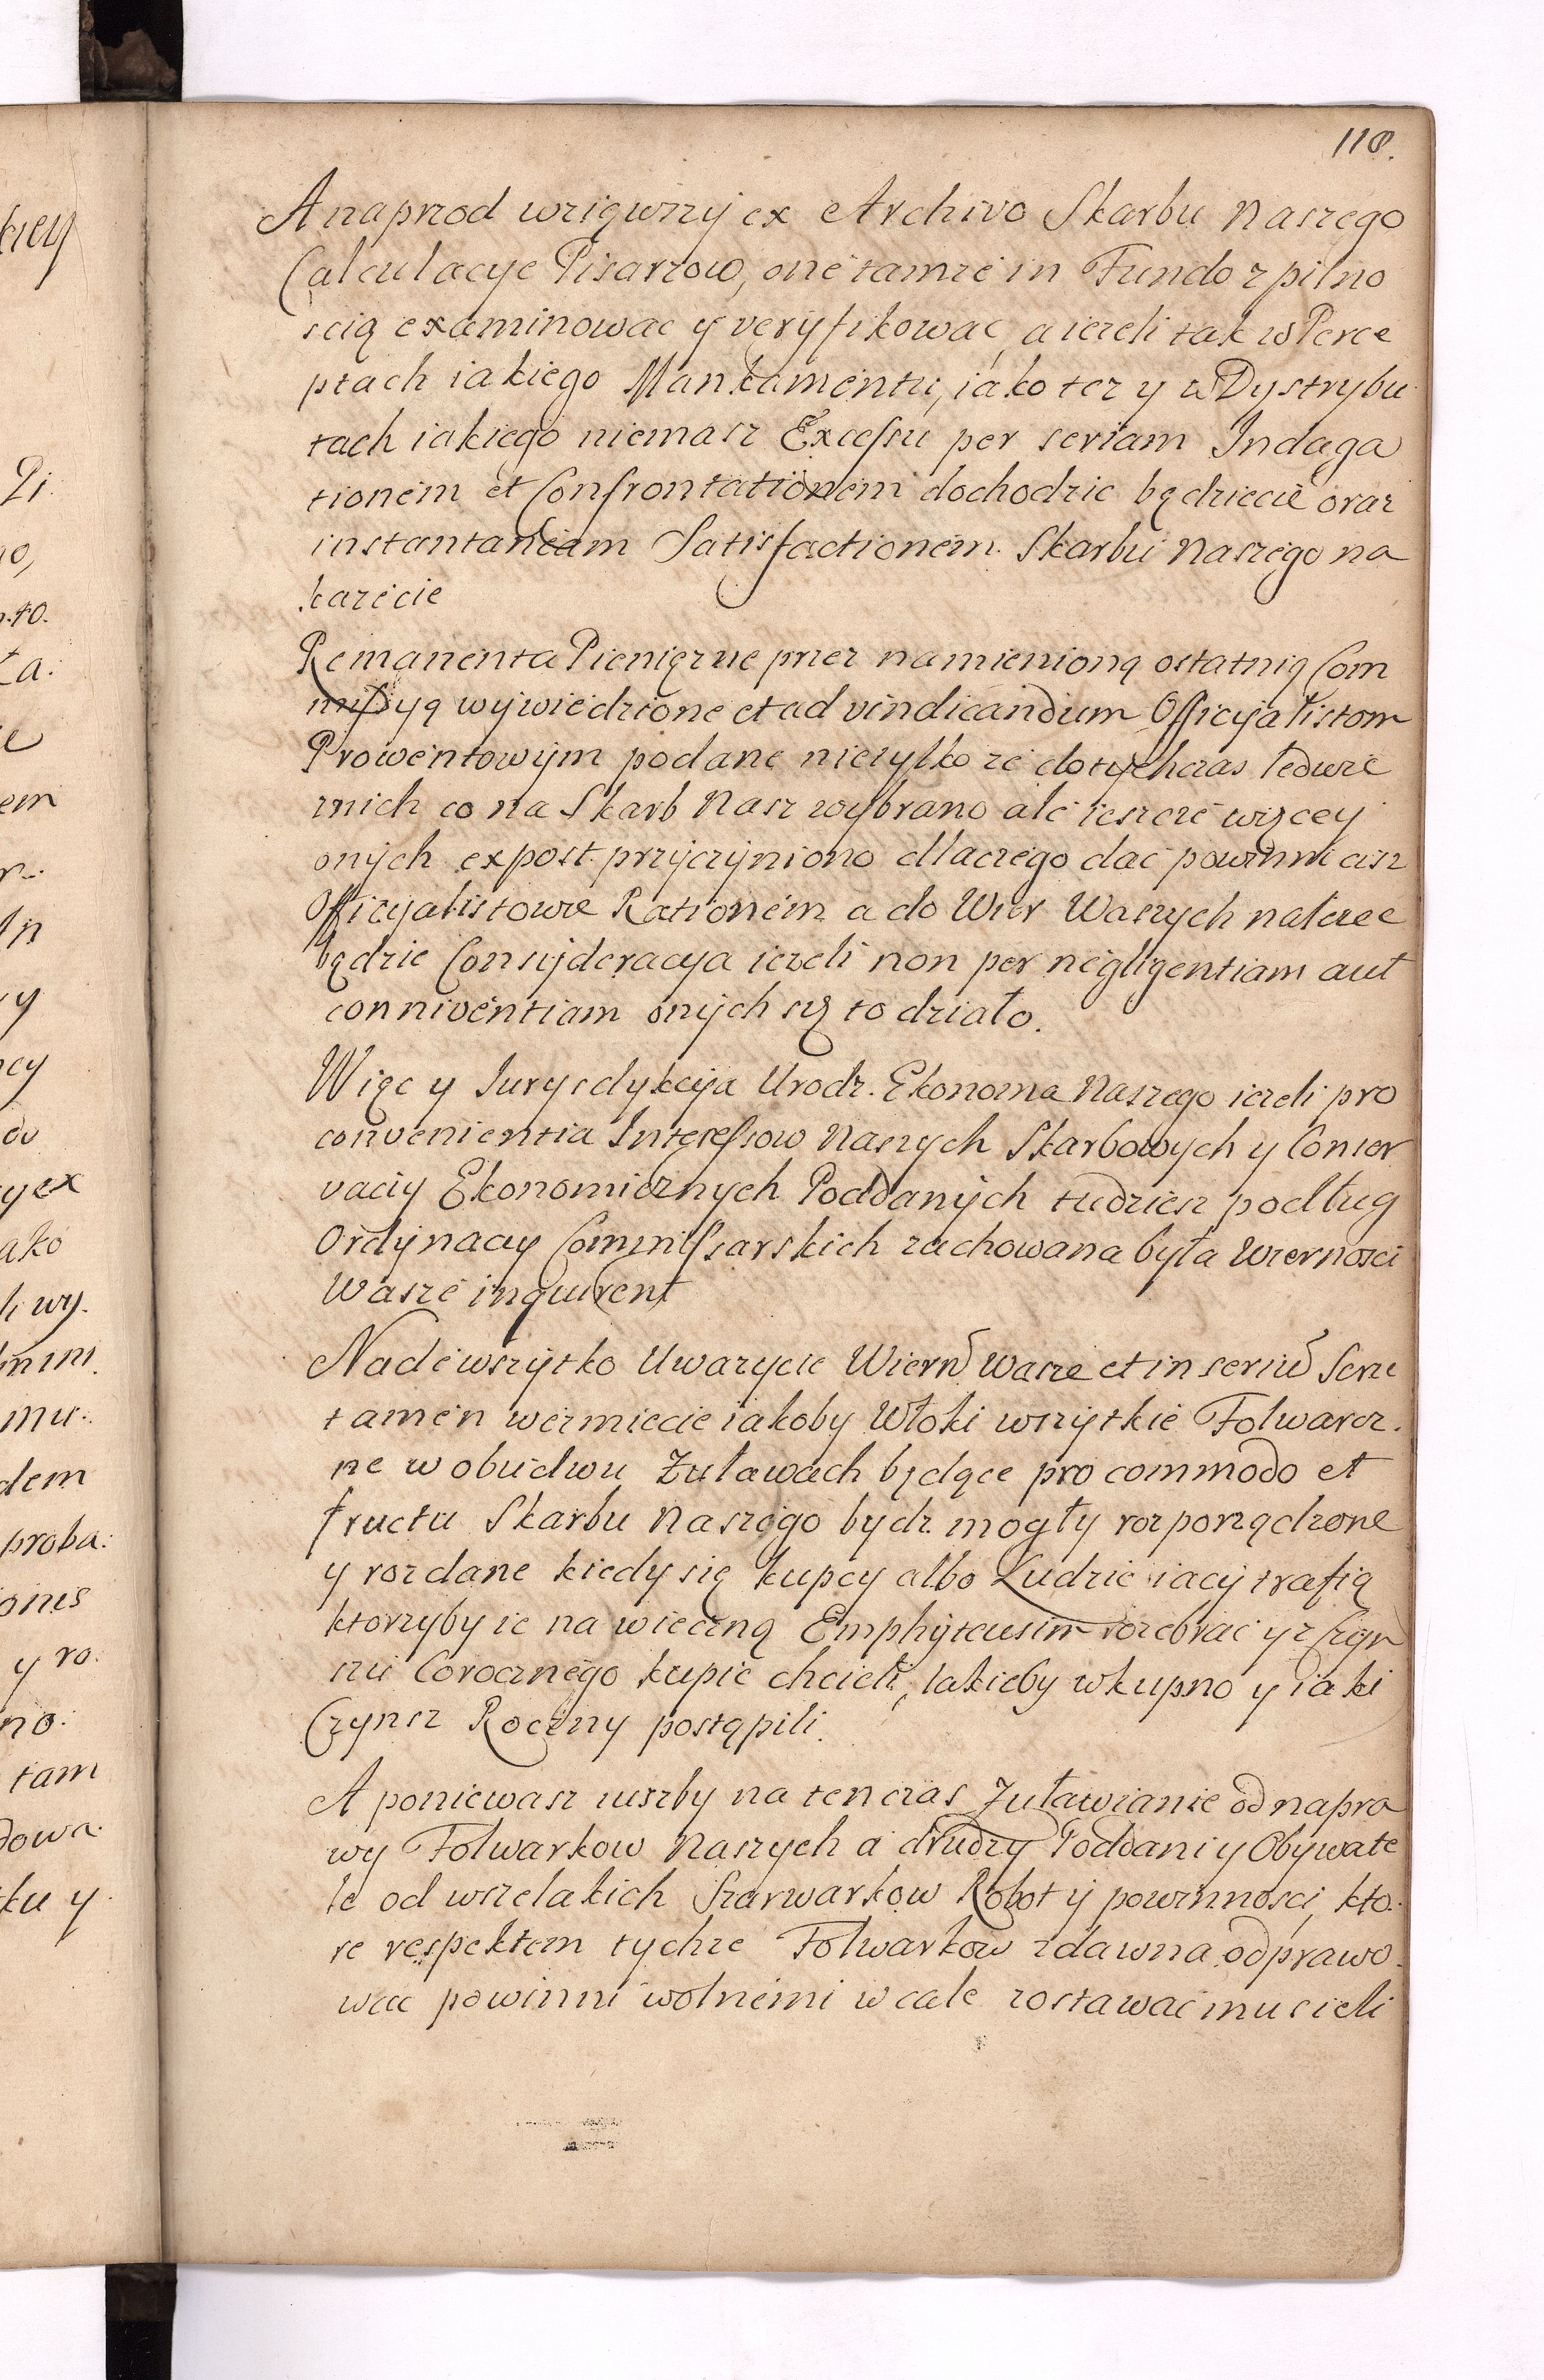 118.
A naprzod wziąwszy ex Archivo Skarbu Naszego
Calculacye Pisarzow, one tamze in Fundo z pilno
scią examinowac y veryfikowac, a iezeli tak w Perce
ptach iakiego Mankamentu, iako tez y w Dystrybu
tach iakiego niemasz Excessu per seriam Indaga
tionem et Confrontationem dochodzic będziecie oraz
instantaneam Satisfactionem Skarbu Naszego na
kazecie
Remanenta Pienięzne przez namienioną ostatnią Com
missyą wywiedzione et ad vindicandum Officyalistom
Prowentowym podane nietylko ze dotychczas ledwie
znich co na Skarb Nasz wybrano ale ieszcze więcey
onych ex post przyczyniono dlaczego dac powinni cisz
Officyalistowie Rationem a do Wier Waszych nalezec
będzie Consyderacya iezeli non per negligentiam aut
conniventiam onych się to działo.
Więc y Jurysdykcya Urodz. Ekonoma Naszego iezeli pro
convenientia Interessow Naszych Skarbowych y Conser
vaciy Ekonomicznych Poddanych tudziesz podług
Ordynacyi Commissarskich zachowana była Wiernosci
Wasze inquirent
Nadewszytko Uwazycie Wiern Wasze et in serium Scru
tamen wezmiecie iakoby Włoki wszytkie Folwarcz.
ne w obudwu Zuławach będące pro commodo et
fructu Skarbu Naszego bydz mogły rozporządzone
y rozdane kiedy się kupcy albo Ludzie iacy trafią
ktorzyby ie na wieczną Emphyteusim rozebrac y z Czyn
szu Corocznego kupic chcieli, Iakieby wkupno y iaki
Czynsz Roczny postąpili.
A poniewasz iuszby na ten czas Zuławianie od napra
wy Folwarkow Naszych a drudzy Poddani y Obywate
le od wszelakich Szarwarkow Robot y powinnosci, kto.
re respektem tychze Folwarkow zdawna odprawo
wac powinni wolnemi w cale zostawac musieli